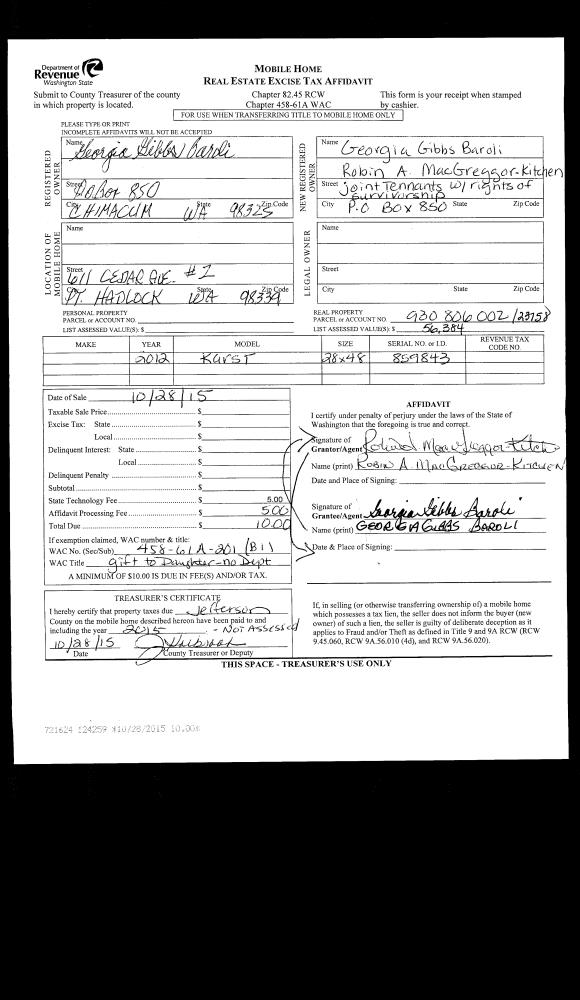 Department of
Revenue
Washington State
MOBILE HOME
REAL ESTATE EXCISE TAX AFFIDAVIT
Submit to County Treasurer of the county
in which property is located.
Chapter 82.45 RCW
Chapter 458-61A WAC
This form is your receipt when stamped
by cashier.
FOR USE WHEN TRANSFERRING TITLE TO MOBILE HOME ONLY
PLEASE TYPE OR PRINT
INCOMPLETE AFFIDAVITS WILL NOT BE ACCEPTED
REGISTERED OWNER
Name Georgia Gibbs Baroli
Street PO Box 850
City CHIMACUM State WA 98325 Zip Code
NEW REGISTERED OWNER
Name Georgia Gibbs Baroli
Robin A. MacGreggor-Kitchen
Street joint Tennants w/ rights of
survivorship
City P.O Box 850 State Zip Code
LOCATION OF MOBILE HOME
Name
Street 611 CEDAR AVE. #2
City PT. HADLOCK State WA 98339 Zip Code
LEGAL OWNER
Name
Street
City State Zip Code
PERSONAL PROPERTY
PARCEL or ACCOUNT NO.
LIST ASSESSED VALUE(S): $
REAL PROPERTY
PARCEL or ACCOUNT NO. 930 806 002 / 23758
LIST ASSESSED VALUE(S): $ 56,384
MAKE YEAR MODEL SIZE SERIAL NO. or I.D. REVENUE TAX CODE NO.
2012 Karst 28x48 859843
Date of Sale 10/28/15
Taxable Sale Price $
Excise Tax: State $
Local $
Delinquent Interest: State $
Local $
Delinquent Penalty $
Subtotal $
State Technology Fee $ 5.00
Affidavit Processing Fee $ 5.00
Total Due $ 10.00
If exemption claimed, WAC number & title:
WAC No. (Sec/Sub) 458-61A-201 (B1)
WAC Title gift to Daughter-no Dept
A MINIMUM OF $10.00 IS DUE IN FEE(S) AND/OR TAX.
AFFIDAVIT
I certify under penalty of perjury under the laws of the State of
Washington that the foregoing is true and correct.
Signature of
Grantor/Agent
Name (print) ROBIN A. MACGREGGOR-KITCHEN
Date and Place of Signing:
Signature of
Grantee/Agent Georgia Gibbs Baroli
Name (print) GEORGIA GIBBS BAROLI
Date & Place of Signing:
TREASURER'S CERTIFICATE
I hereby certify that property taxes due Jefferson
County on the mobile home described hereon have been paid to and
including the year 2015 - NOT ASSESSED
10/28/15
Date County Treasurer or Deputy
If, in selling (or otherwise transferring ownership of) a mobile home
which possesses a tax lien, the seller does not inform the buyer (new
owner) of such a lien, the seller is guilty of deliberate deception as it
applies to Fraud and/or Theft as defined in Title 9 and 9A RCW (RCW
9.45.060, RCW 9A.56.010 (4d), and RCW 9A.56.020).
THIS SPACE - TREASURER'S USE ONLY
721624 124259 10/28/2015 10.00